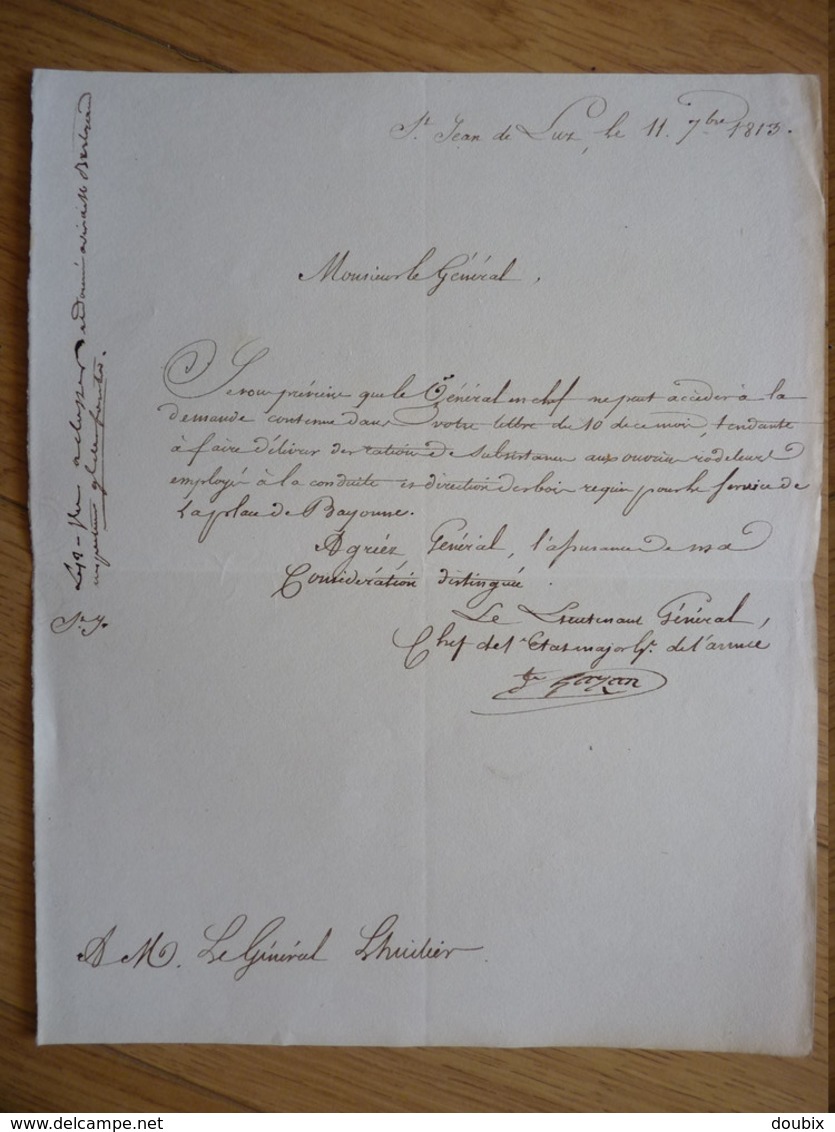 St. Jean de Luz, le 11. 7bre 1813.
Monsieur le Général,
Je vous préviens que le Général en chef ne peut accéder à la
demande contenue dans votre lettre du 10 de ce mois, tendante
à faire délivrer des rations de subsistance aux ouvriers radeleurs
employés à la conduite et direction des bois requis pour le service de
la place de Bayonne.
Agréez Général, l'assurance de ma
Considération distinguée.
Le Lieutenant Général,
Chef de l'Etat major Gl. de l'armée
Gazan
A M. Le Général Lhuilier
delcampe.net
doubix